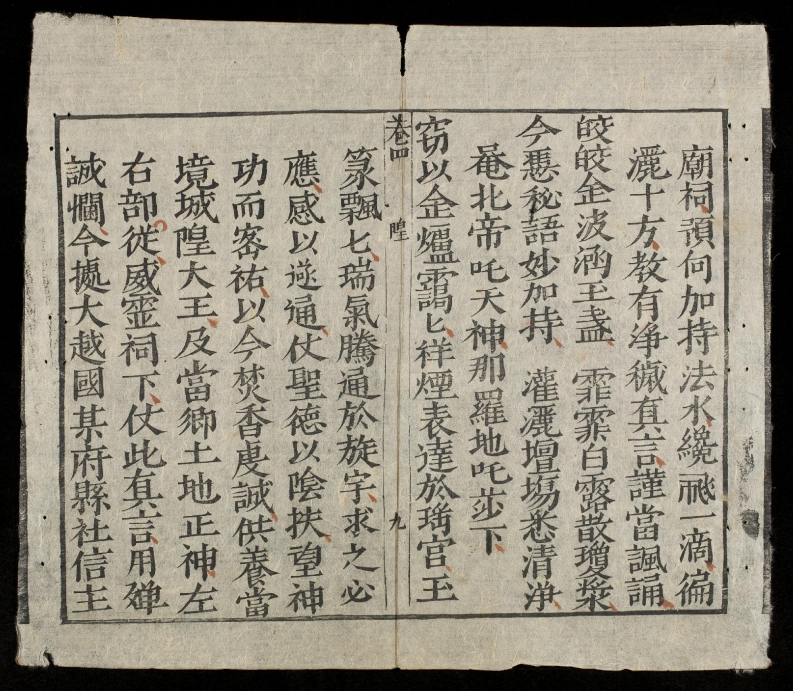 廟祠預向加持法水纔飛一滴徧
灑十方教有淨穢真言謹當諷誦
皎皎金波涵玉盞 霏霏白露散瓊槳
今憑秘語妙加持 灌灑壇場悉清淨
菴北帝吒天神那羅地吒莎下
窃以金爐靄匕祥煙表達於瑤宮玉
卷四 隍 九
篆飄匕瑞氣騰通於旋字求之必
應感以遂通仗聖德以陰扶望神
功而密祐以今焚香虔誠供養當
境城隍大王及當鄉土地正神左
右部從威灵祠下仗此真言用殫
誠悃今據大越國某府縣社信主